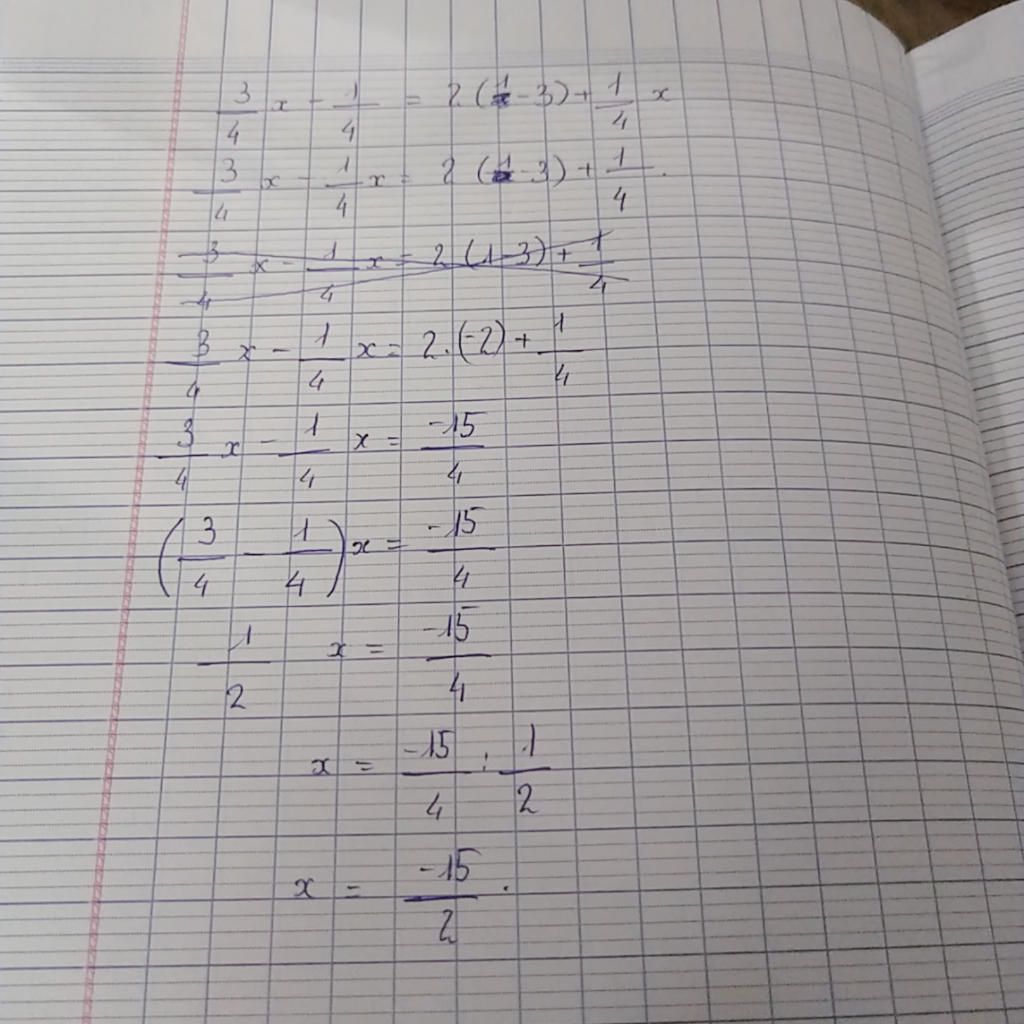 3/4 x - 1/4 = 2(1-3) + 1/4 x
3/4 x - 1/4 x = 2(1-3) + 1/4.
3/4 x - 1/4 x = 2(1-3) + 1/4
3/4 x - 1/4 x = 2.(-2) + 1/4
3/4 x - 1/4 x = -15/4
(3/4 - 1/4)x = -15/4
1/2 x = -15/4
x = -15/4 : 1/2
x = -15/2.